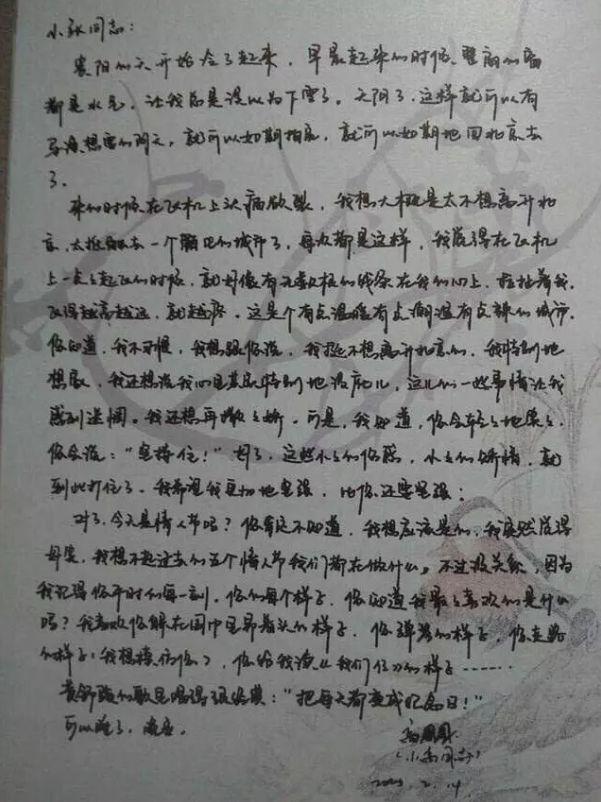 小张同志：
襄阳的天开始冷了起来，早晨起来的时候，壁
都是水，让我总是误以为下雪了。天阴了，这样就可以有
的阴天，就可以如期拍完，就可以如期地回北京去
了。
来的时候在飞机上头痛欲裂，我想大概是太不想离开北
京，去一个的城市了，每次都是这样，我觉得在飞机
上一点点起飞的时候，就好像有无数根的线系在我的心上，拉扯着我，
飞得越高越远，就越疼。这是个有点温暖有点潮湿有点辣的城市，
你知道，我不习惯，我想跟你说，我挺不想离开北京的，我特别地
想家，我还想说我心里其实特别地没底儿，这儿的一些事情让我
感到迷惘。我还想再撒撒娇。可是，我知道，你会轻轻地
你会说：“坚持住！”好了，这些小小的，小小的矫情，就
到此打住了。我希望我更加地坚强，比你还要坚强；
对了，今天是情人节吗？你肯定不知道，我想应该是的，我突然觉得
，我想不起过去的五个情人节我们都在做什么。不过没关系，因为
我记得你平时的每一刻，你的每个样子，你知道我最最喜欢的是什么
吗？我喜欢你的样子，你弹琴的样子，你走路
的样子（我想模仿你），你给我读《我们仨》的样子……
黄舒骏的歌里唱得很好：“把每天都变成纪念日！”
可以睡了，
（小同志）
2.14